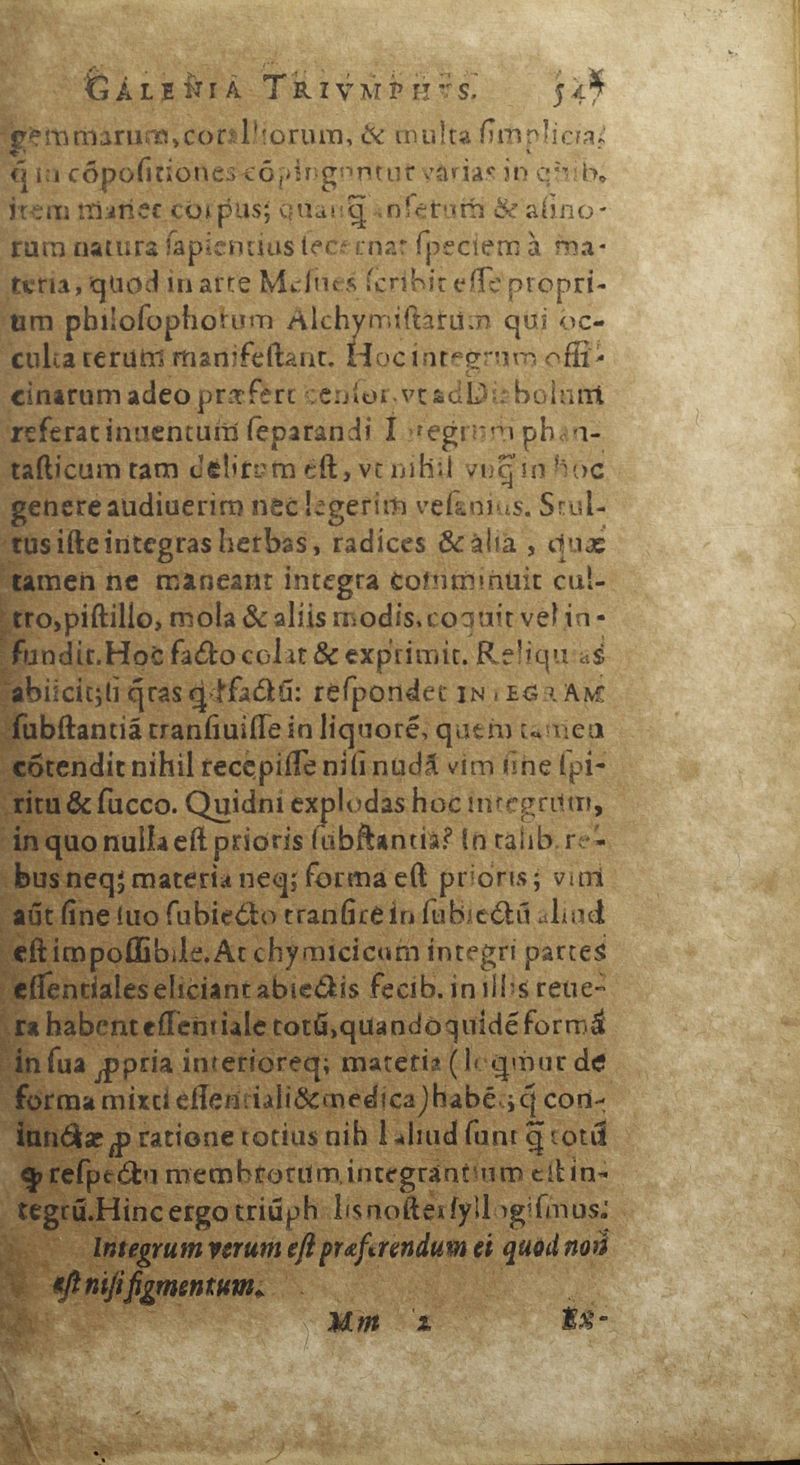 GALENIA TRIVMPHVS. 547
gemmarum, coralliorum, & multa simplicia,
q̃ in cōpositiones cōpinguntur varias in quib.
item manet corpus; quanq̃ & asino-
rum natura sapientius secernat speciem à ma-
teria, quod in arte Mesues scribit esse propri-
um philosophorum Alchymistarum qui oc-
culta rerum manifestant. Hoc integrum offi-
cinarum adeo præfert censor, vt ad Diabolum
referat inuentum separandi Integrum phan-
tasticum tam delirum est, vt nihil vnq̃ in hoc
genere audiuerim nec legerim vesanius. Stul-
tus iste integras herbas, radices & alia, quæ
tamen ne maneant integra comminuit cul-
tro, pistillo, mola & aliis modis, coquit vel in-
fundit. Hoc facto colat & exprimit. Reliquias
abiicit; si q̃ras factū: respondet INTEGRAM
substantiā transiuisse in liquorē, quem tamen
cōtendit nihil recepisse nisi nudā vim sine spi-
ritu & succo. Quidni explodas hoc integrum,
in quo nulla est prioris substantia? In talib. re-
bus neq; materia neq; forma est prioris; vim
aūt sine suo subiecto transire in subiectū aliud
est impossibile. At chymici cum integri partes
essentiales eliciant abiectis fecib. in illis reue-
ra habent essentiale totū, quandoquidē formā
in sua ꝓpria interioreq; materia (loquimur de
forma mixti essentiali & medica) habēt; q̃ con-
iunctæ ꝓ ratione totius nihil aliud sunt q̃ totū
ꝙ respectu membrorum integrantium est in-
tegrū. Hinc ergo triūphalis noster syllogismus:
Integrum verum est præferendum ei quod non
est nisi figmentum.
Mm 2 Ex-